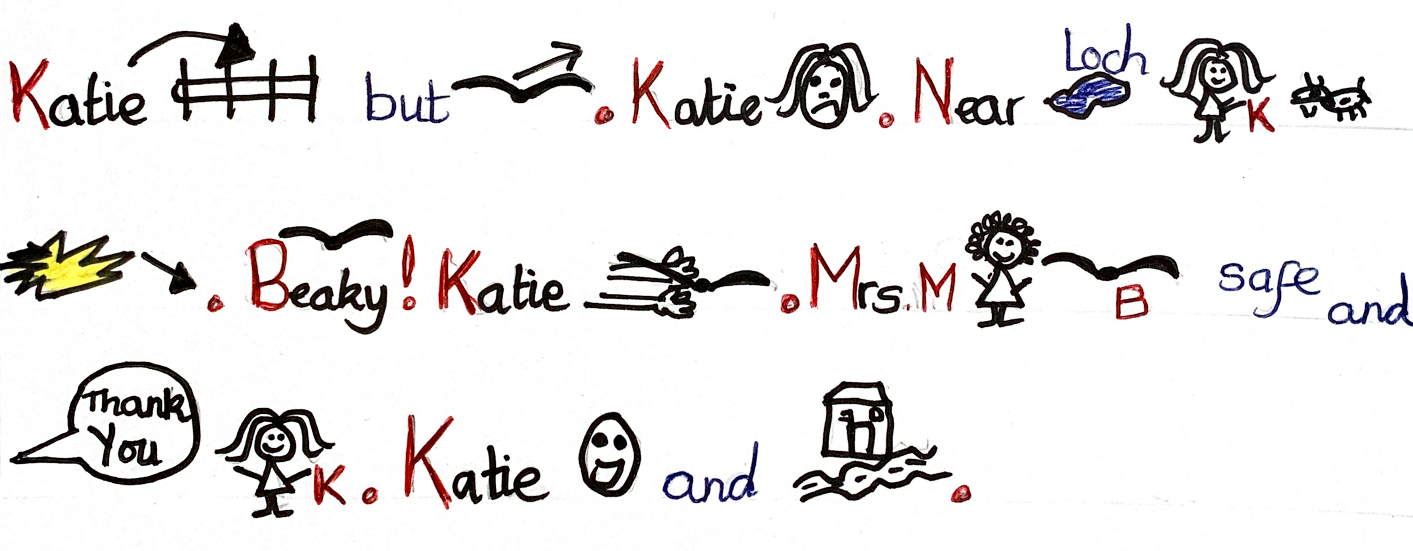 Katie but . Katie . Near Loch K
. Beaky! Katie . Mrs. M B safe and
Thank You K . Katie and .